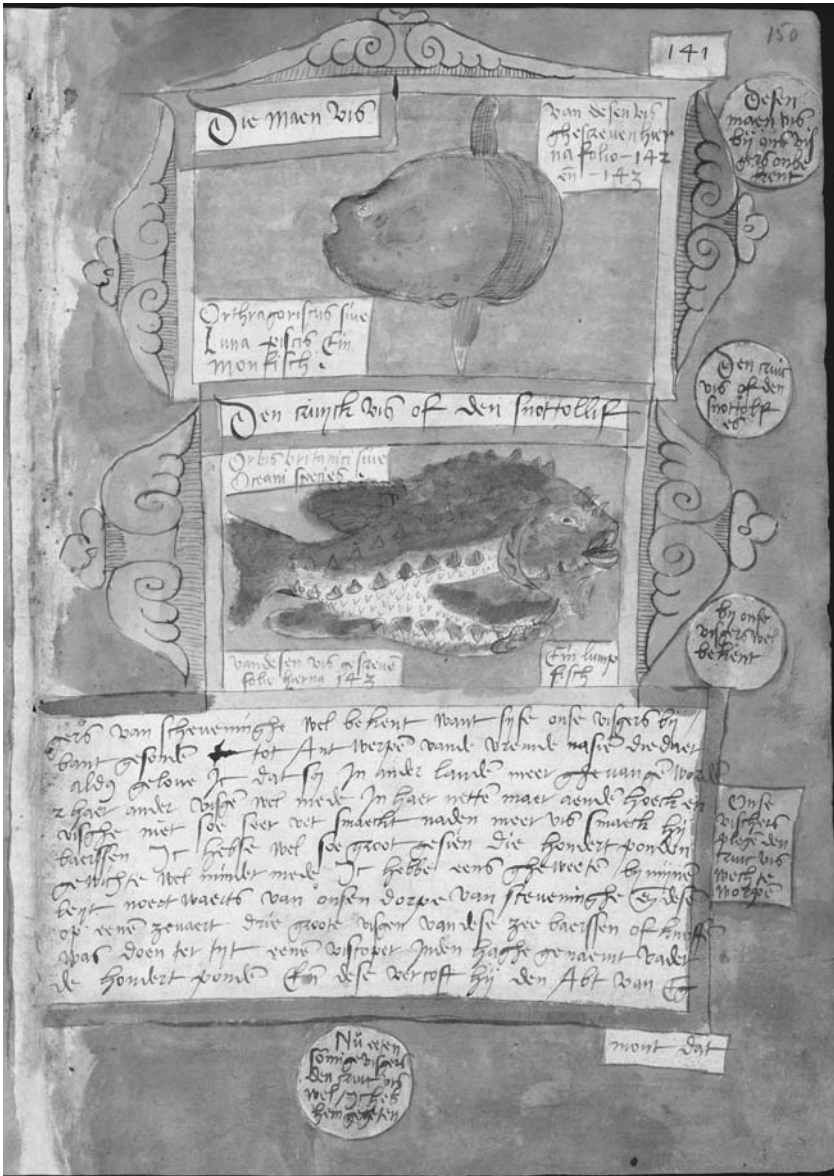 150
141
Die maen vis
van desen vis
ghescreven hier
na folio - 142
en - 143
Desen
maen vis
bij ons vis
gers onbe
kent
Orthragoriscus sive
Luna piscis Ein
monfisch
Den cruyck vis of den snottollif
Den cruic
vis of den
snottolf
es
Orbis britanici sive
Oceani species
bij onse
visgers wel
bekent
van desen vis gescreve
folio hierna 143
Ein lump
fisch
gers van scheveninghe wel bekent want sijse onse visgers bij
bant gesonden tot Antwerpen vande vremde nasien die
aldus gelove Ic dat sij In ander landen meer ghevangen worden
haer ander visgen wel mede In haer netten maer aenden hoeck en
vische niet soe seer vet smaeckt naden meer vis smaeck hij
baerssen Ic hebse wel soe groot gesien die hondert ponden
gewichte wel minder mede Ic hebbe eens gheweeten bij mijnen
noortwaerts van onsen dorpe van steveninghe Eij dese
op eenen zevaert drie groote visgen van dese zee baerssen of
was doen ter tijt eenen viscoper Inden haghe genaemt vader
de hondert ponden Ein dese vercoft hij den Abt van Eg
mont dat
Onse
vischers
plegen den
cruic vis
wech te
worpen
Nu eeten
somige visgers
den cruic vis
wel / Ic heb
hem gegeten